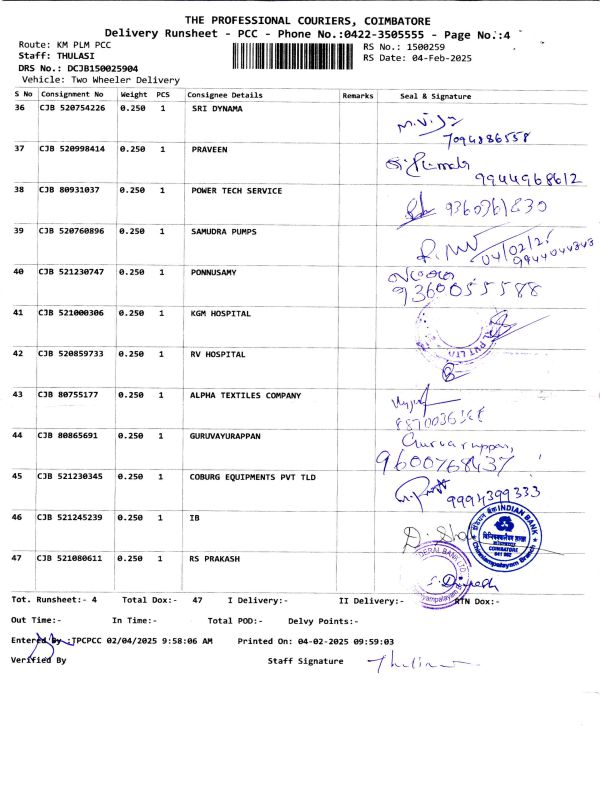 THE PROFESSIONAL COURIERS, COIMBATORE
Delivery Runsheet - PCC - Phone No.:0422-3505555 - Page No.:4
Route: KM PLM PCC
RS No.: 1500259
Staff: THULASI
RS Date: 04-Feb-2025
DRS No.: DCJB150025904
Vehicle: Two Wheeler Delivery
S No Consignment No Weight PCS Consignee Details Remarks Seal & Signature
36 CJB 520754226 0.250 1 SRI DYNAMA
7094886558
37 CJB 520998414 0.250 1 PRAVEEN
9944968612
38 CJB 80931037 0.250 1 POWER TECH SERVICE
39 CJB 520760896 0.250 1 SAMUDRA PUMPS
04/02/25
9944044343
40 CJB 521230747 0.250 1 PONNUSAMY
9360055588
41 CJB 521000306 0.250 1 KGM HOSPITAL
PVT LTD
42 CJB 520859733 0.250 1 RV HOSPITAL
43 CJB 80755177 0.250 1 ALPHA TEXTILES COMPANY
44 CJB 80865691 0.250 1 GURUVAYURAPPAN
Guruvaruppan,
9600768437
45 CJB 521230345 0.250 1 COBURG EQUIPMENTS PVT TLD
9994399333
46 CJB 521245239 0.250 1 IB
INDIAN BANK
COIMBATORE
47 CJB 521080611 0.250 1 RS PRAKASH
FEDERAL BANK LTD
S. Dinesh
Tot. Runsheet:- 4 Total Dox:- 47 I Delivery:- II Delivery:- RTN Dox:-
Out Time:- In Time:- Total POD:- Delvy Points:-
Entered By :TPCPCC 02/04/2025 9:58:06 AM Printed On: 04-02-2025 09:59:03
Verified By Staff Signature